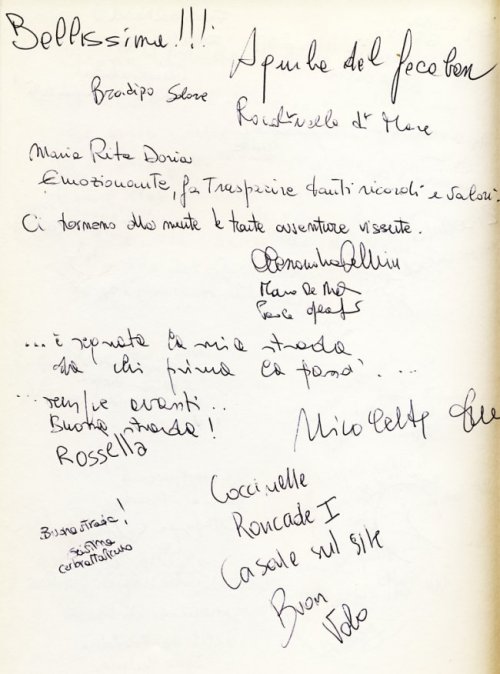 Bellissima!!!
Aquila del
Bradipo Solare
Rondinella di Mare
Maria Rita Doria
Emozionante, fa Trasparire tanti ricordi e valori.
Ci tornano alla mente le tante avventure vissute.
... è segnata la mia strada
da chi prima la passò....
... sempre avanti...
Buona strada!
Rossella
Nicoletta
Coccinelle
Roncade I
Casale sul Sile
Buon
Volo
Buona strada!